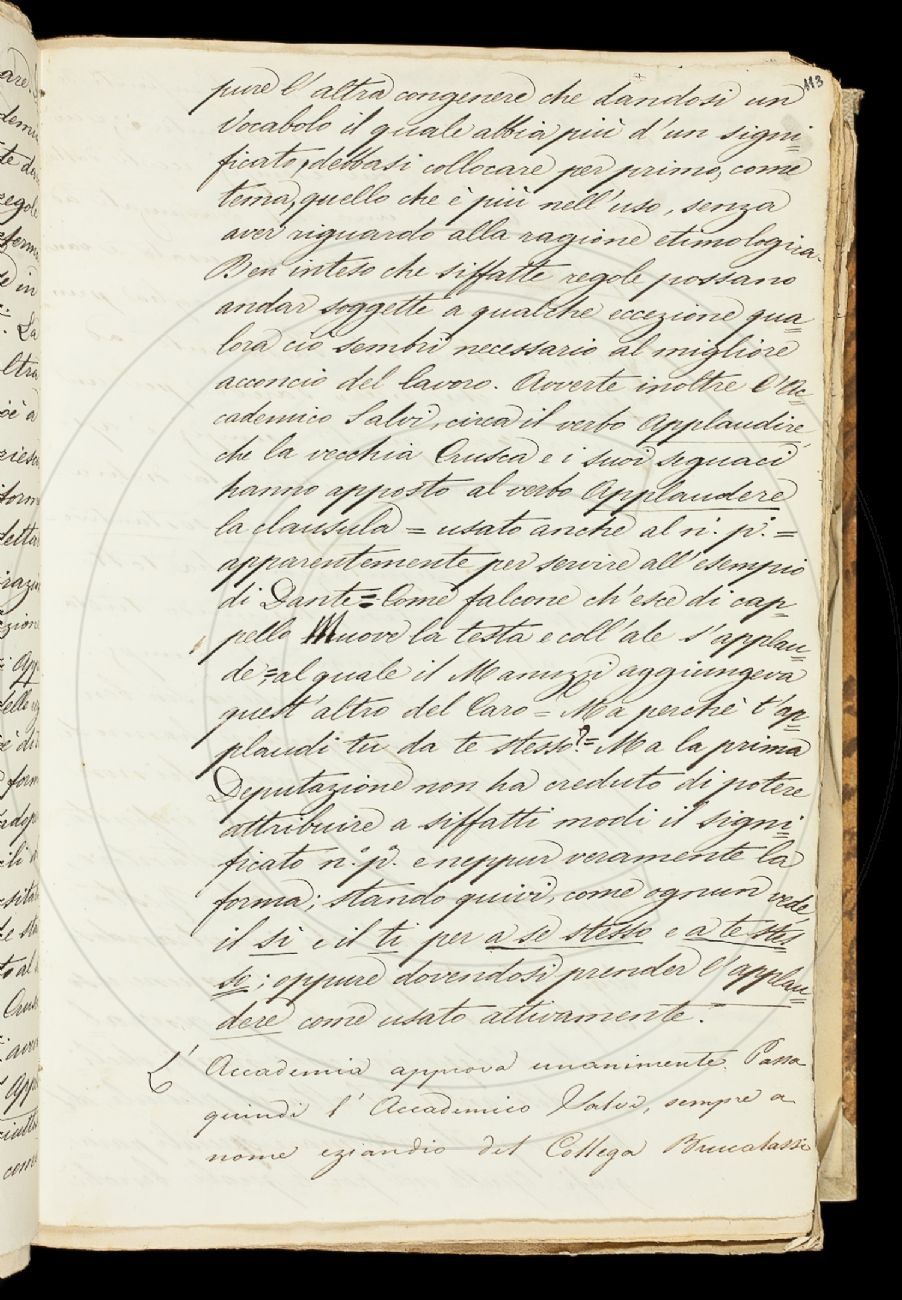 113
pure l'altra congenere che dandosi un
Vocabolo il quale abbia più d'un signi=
ficato, debbasi collocare per primo, come
tema, quello che è più nell'uso, senza
aver riguardo alla ragione etimologica.
Ben inteso che siffatte regole possano
andar soggette a qualche eccezione qua=
lora ciò sembri necessario al migliore
acconcio del lavoro. Avverte inoltre l'Ac=
cademico Salvi, circa il verbo Applaudire,
che la vecchia Crusca e i suoi seguaci
hanno apposto al verbo Applaudere
la clausula = usato anche al n. p. =
apparentemente per servire all'esempio
di Dante = Come falcone ch'esce di cap=
pello Muove la testa e coll'ale s'applau=
de = al quale il Manuzzi aggiungeva
quest'altro del Caro = Ma perchè t'ap=
plaudi tu da te stesso? = Ma la prima
Deputazione non ha creduto di potere
attribuire a siffatti modi il signi=
ficato n. p. e neppur veramente la
forma; stando quivi, come ognun vede,
il si e il ti per a se stesso e a te stes=
so; oppure dovendosi prender l'applau=
dere come usato attivamente.
L'Accademia approva unanimente. Passa
quindi l'Accademico Salvi, sempre a
nome eziandio del Collega Brucalassi